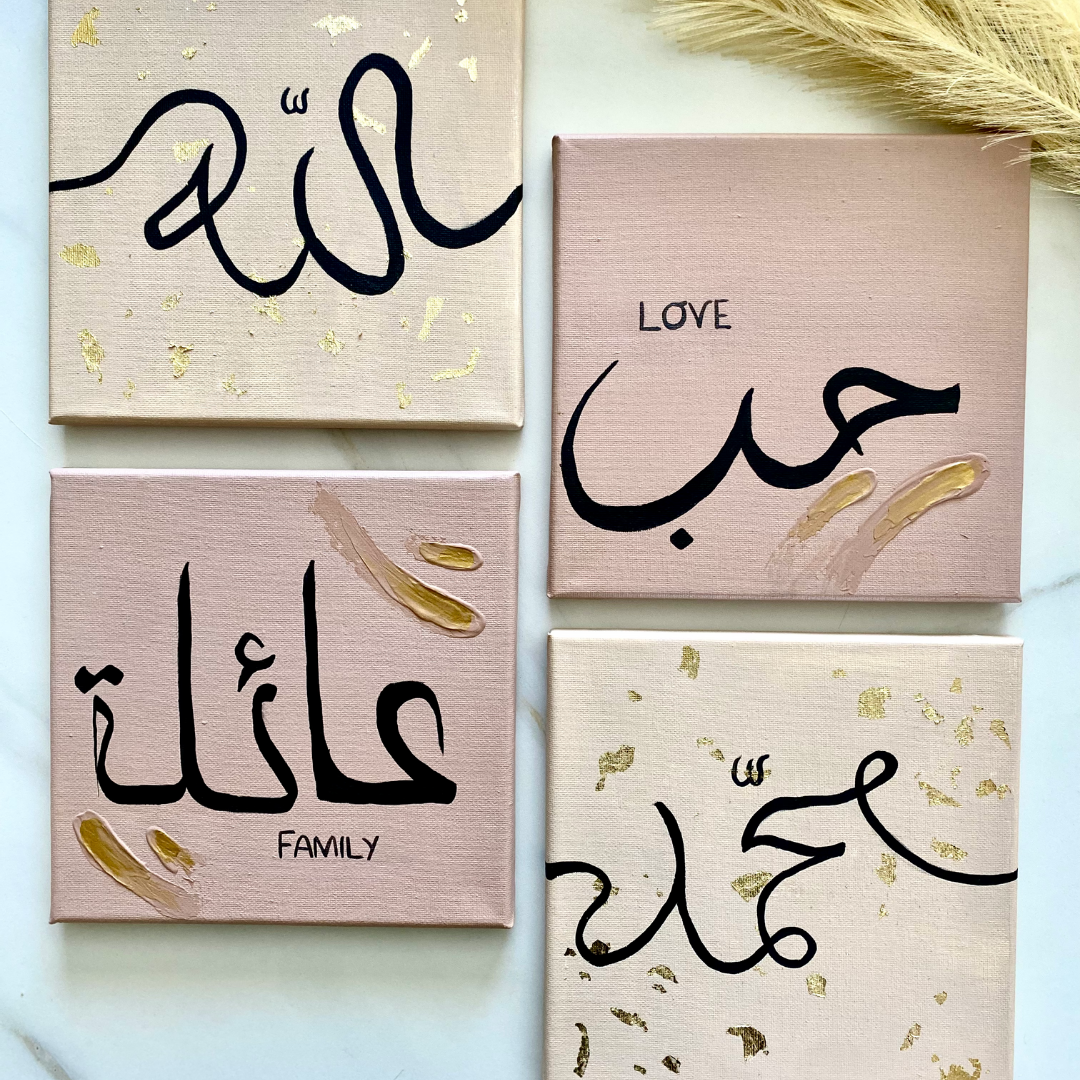 اللّه
LOVE
حب
عائلة
FAMILY
محمّد